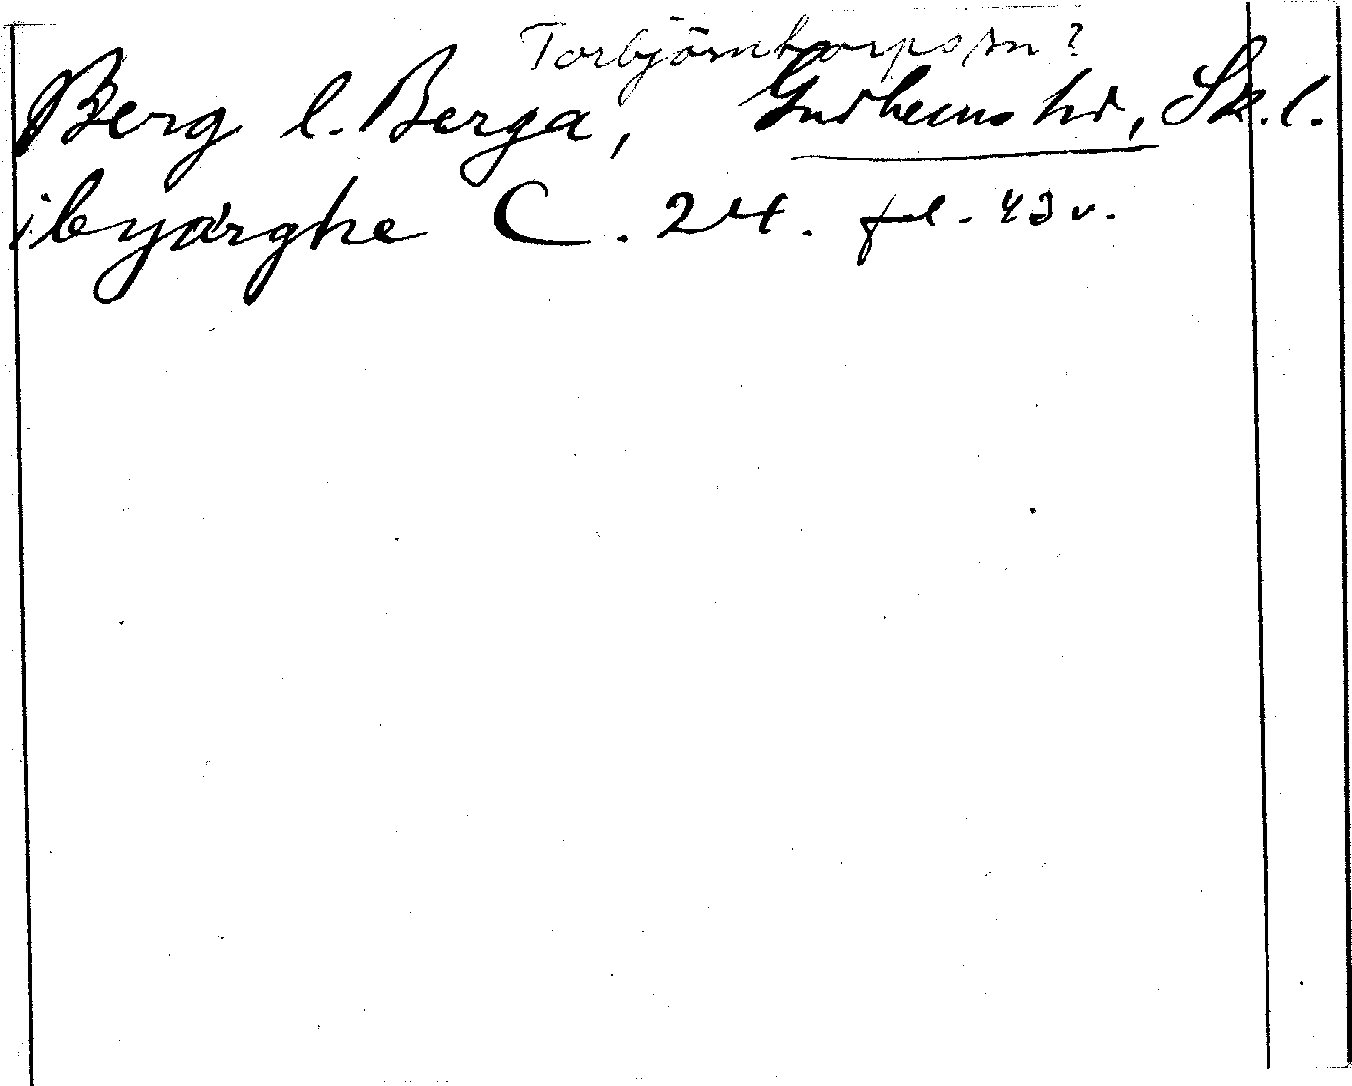 Torbjörntorps sn?
Berg l. Berga, Gudhems hd, Sk. l.
i byärghe C. 24. fol. 43 v.